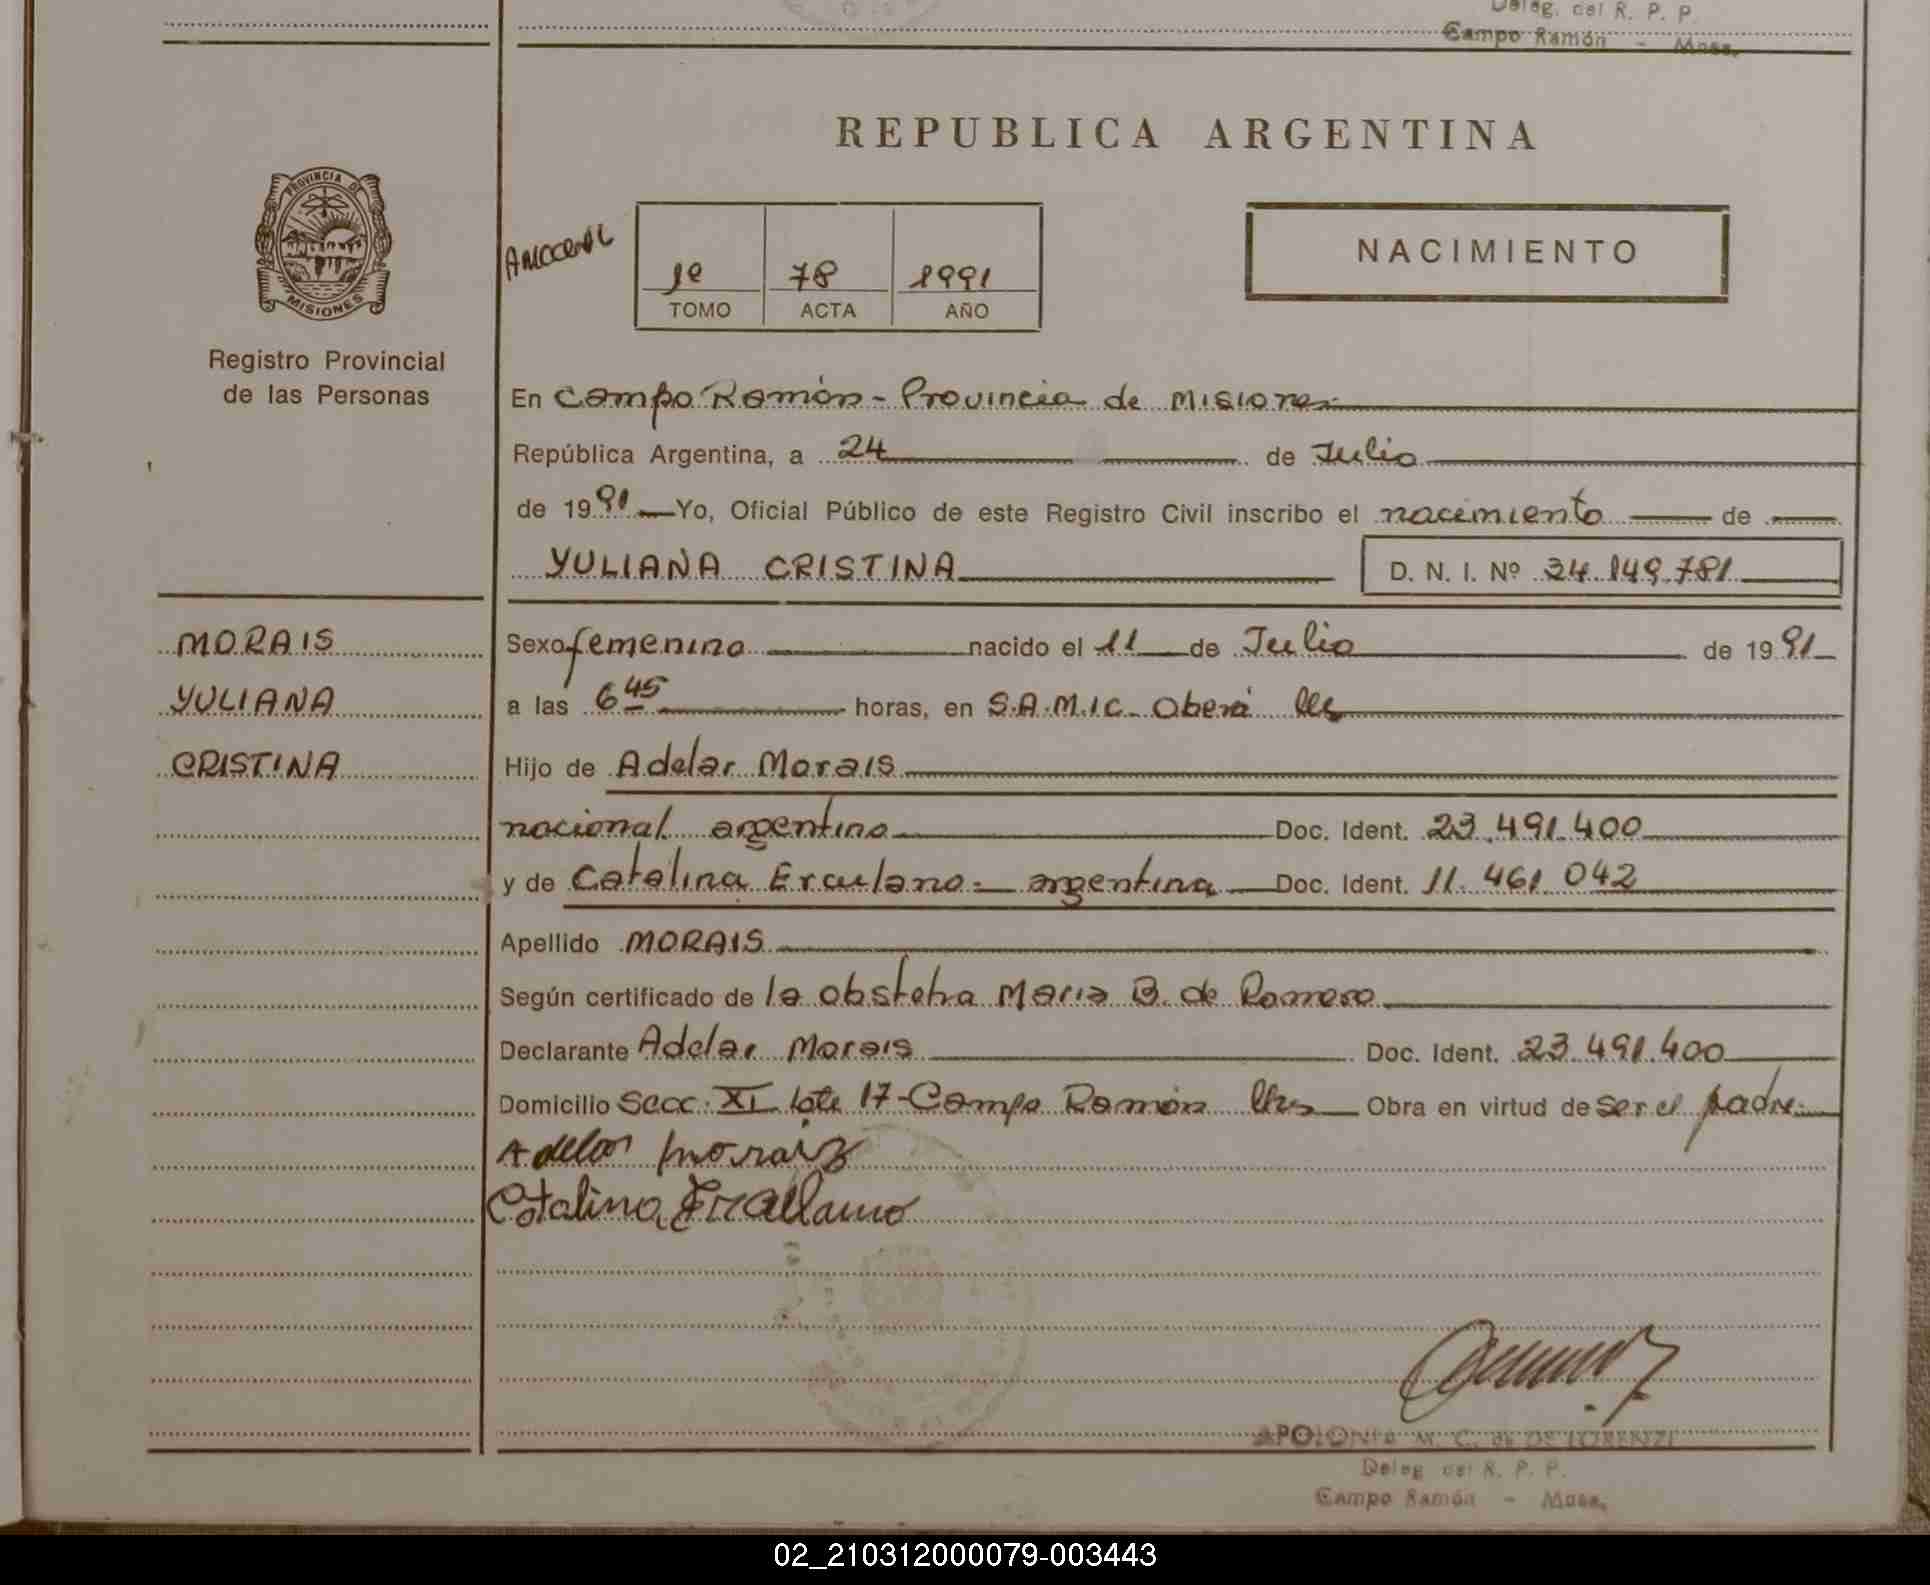 Deleg. del R. P. P.
Campo Ramón - Mnes.
REPUBLICA ARGENTINA
PROVINCIA DE
MISIONES
Registro Provincial
de las Personas
1º 78 1991
TOMO ACTA AÑO
NACIMIENTO
En Campo Ramón - Provincia de Misiones
República Argentina, a 24 de Julio
de 1991 Yo, Oficial Público de este Registro Civil inscribo el nacimiento de
YULIANA CRISTINA D. N. I. Nº 34.149.781
MORAIS
YULIANA
CRISTINA
Sexo femenino nacido el 11 de Julio de 1991
a las 6 45 horas, en S.A.M.I.C. Oberá
Hijo de Adelar Morais
nacional argentino Doc. Ident. 23.491.400
y de Catalina Eraulano - argentina Doc. Ident. 11.461.042
Apellido MORAIS
Según certificado de la obstetra Maria B. de Romero
Declarante Adelar Morais Doc. Ident. 23.491.400
Domicilio Secc. XI lote 17 - Campo Ramón Obra en virtud de ser el padre
Adelar Moraiz
Catalina
APOLONIA M. C. de DE LORENZI
Deleg. del R. P. P.
Campo Ramón - Mnes.
02_210312000079-003443